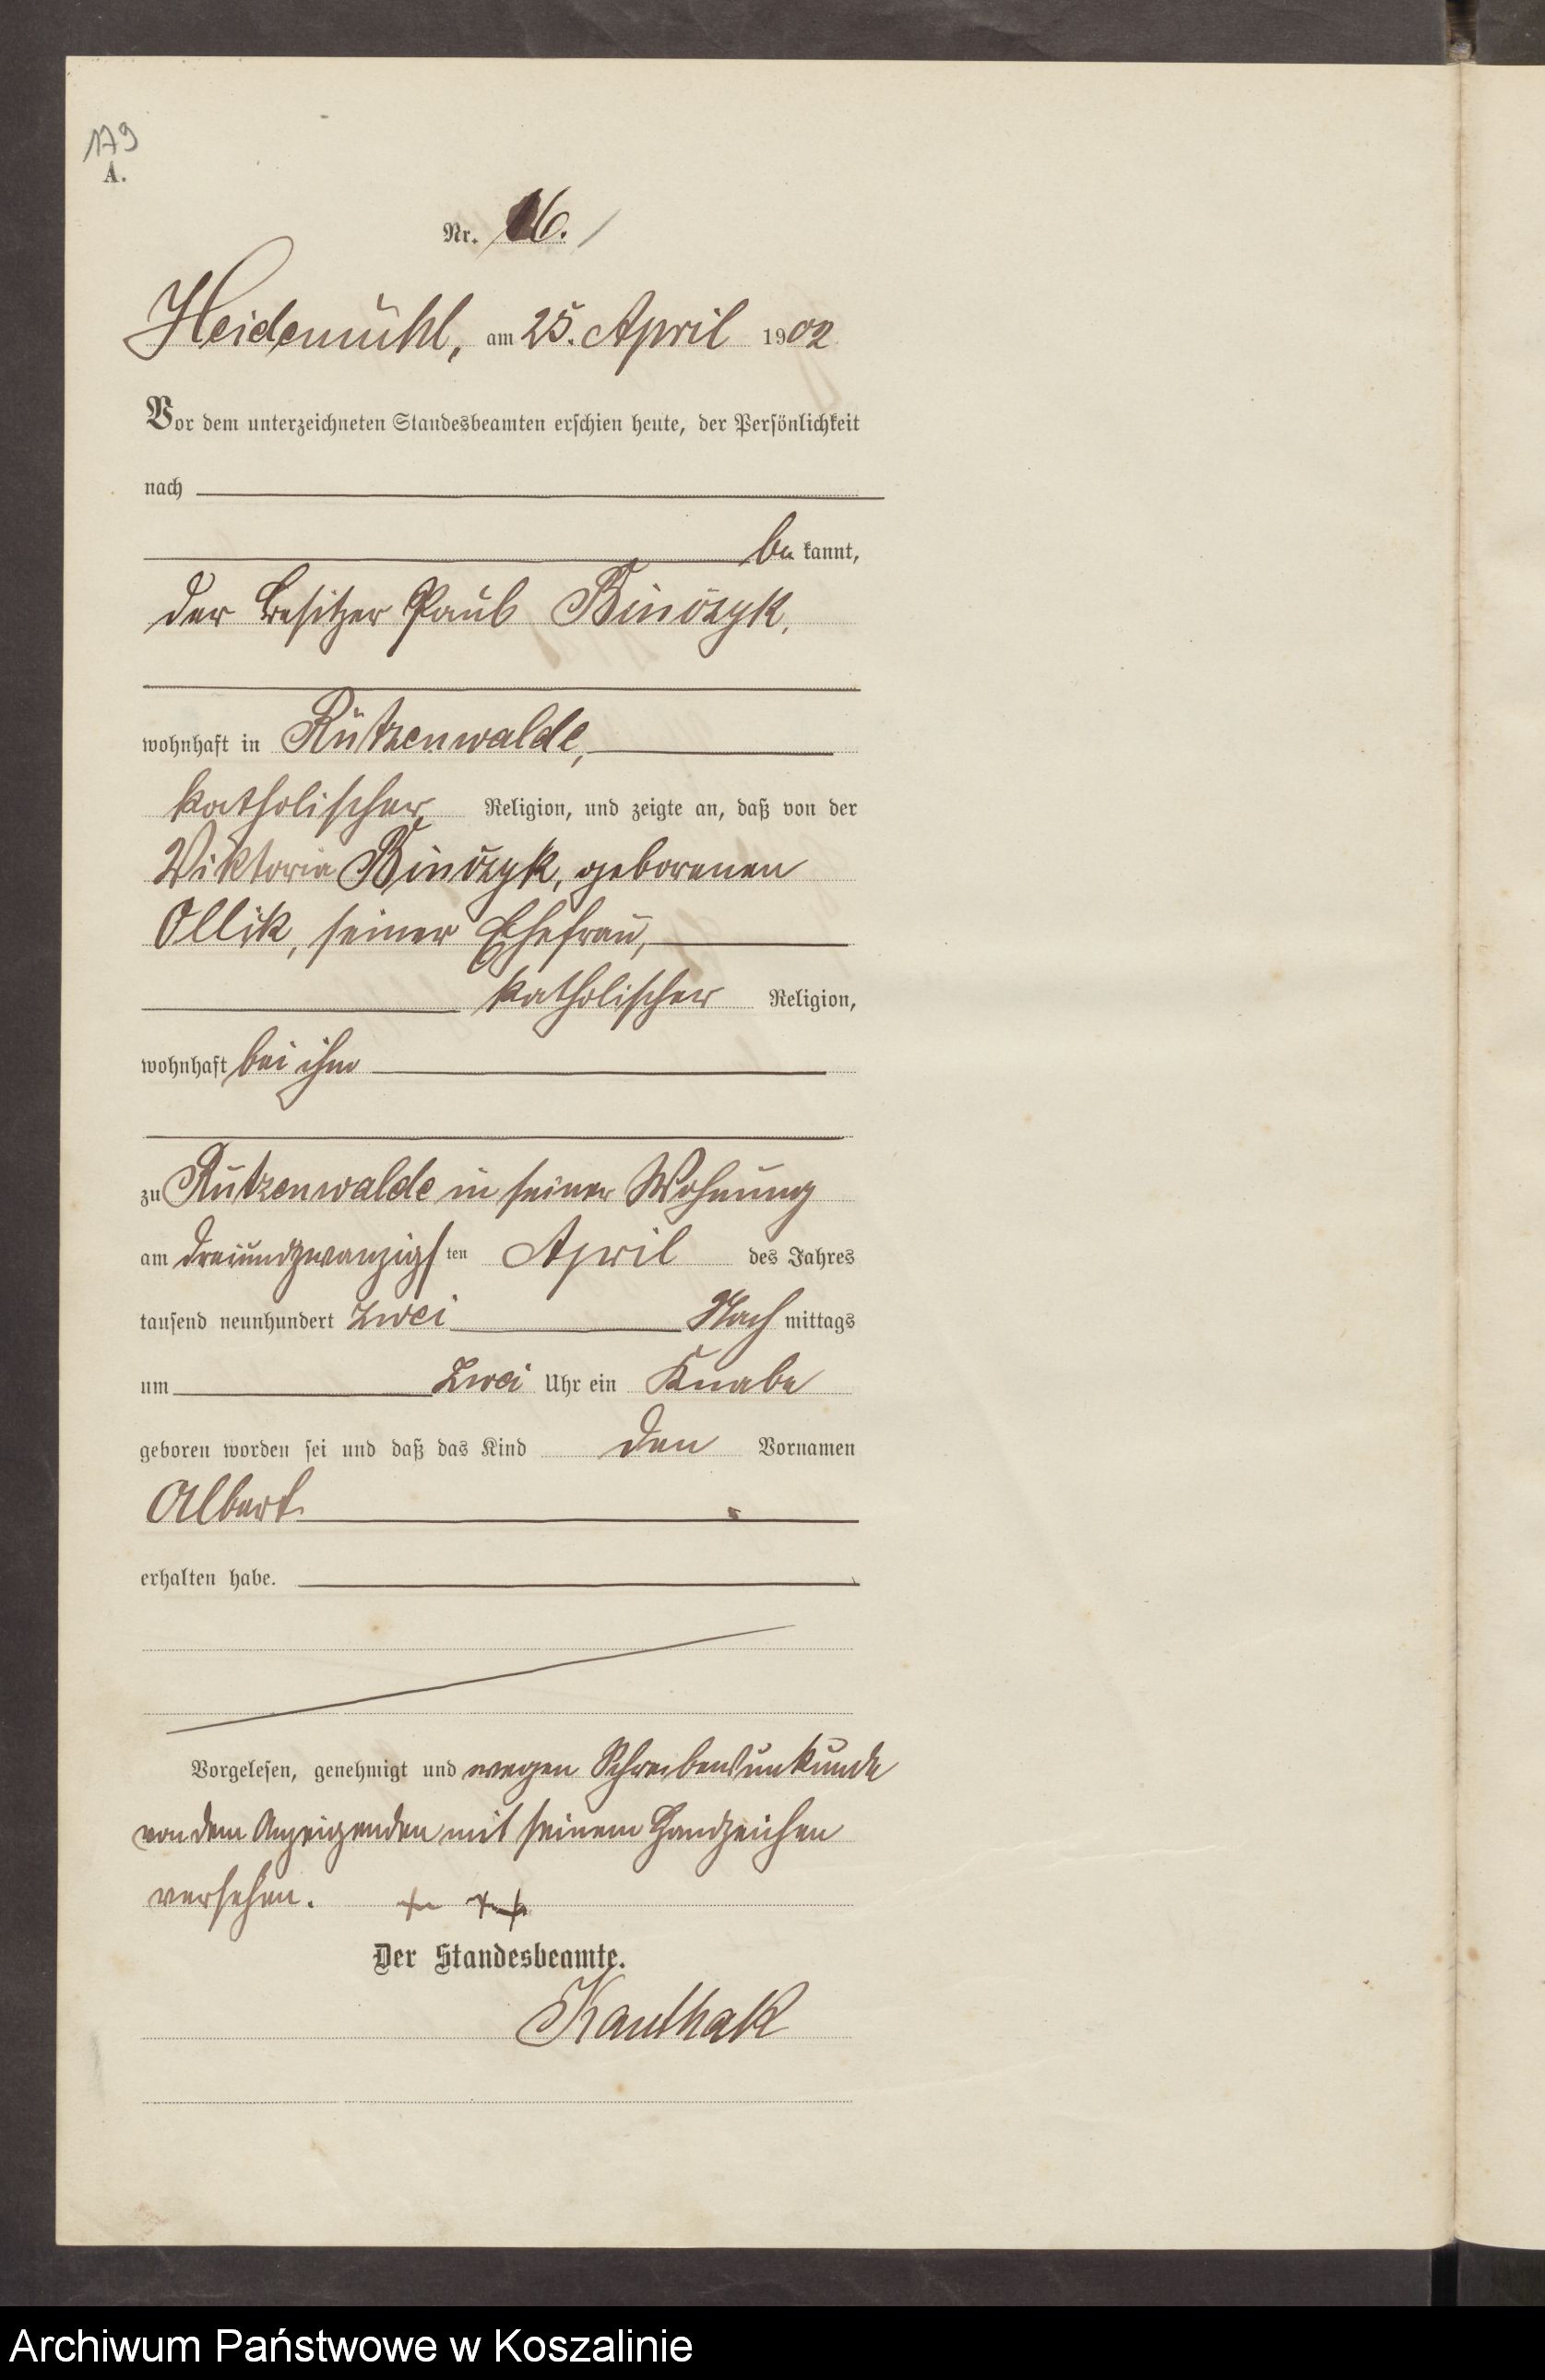 179
A.
Nr. 16.
Heidemühl, am 25. April 1902
Vor dem unterzeichneten Standesbeamten erschien heute, der Persönlichkeit
nach
be kannt,
der Besitzer Paul
wohnhaft in Rützenwalde,
katholischer Religion, und zeigte an, daß von der
Viktoria geborenen
Ollik, seiner Ehefrau,
katholischer Religion,
wohnhaft bei ihm
zu Rützenwalde in seiner Wohnung
am dreiundzwanzigsten April des Jahres
tausend neunhundert zwei Nach mittags
um zwei Uhr ein Knabe
geboren worden sei und daß das Kind den Vornamen
Albert
erhalten habe.
Vorgelesen, genehmigt und wegen Schreibensunkunde
von dem Anzeigenden mit seinem Handzeichen
versehen. + ++
Der Standesbeamte.
Kauthak
Archiwum Państwowe w Koszalinie